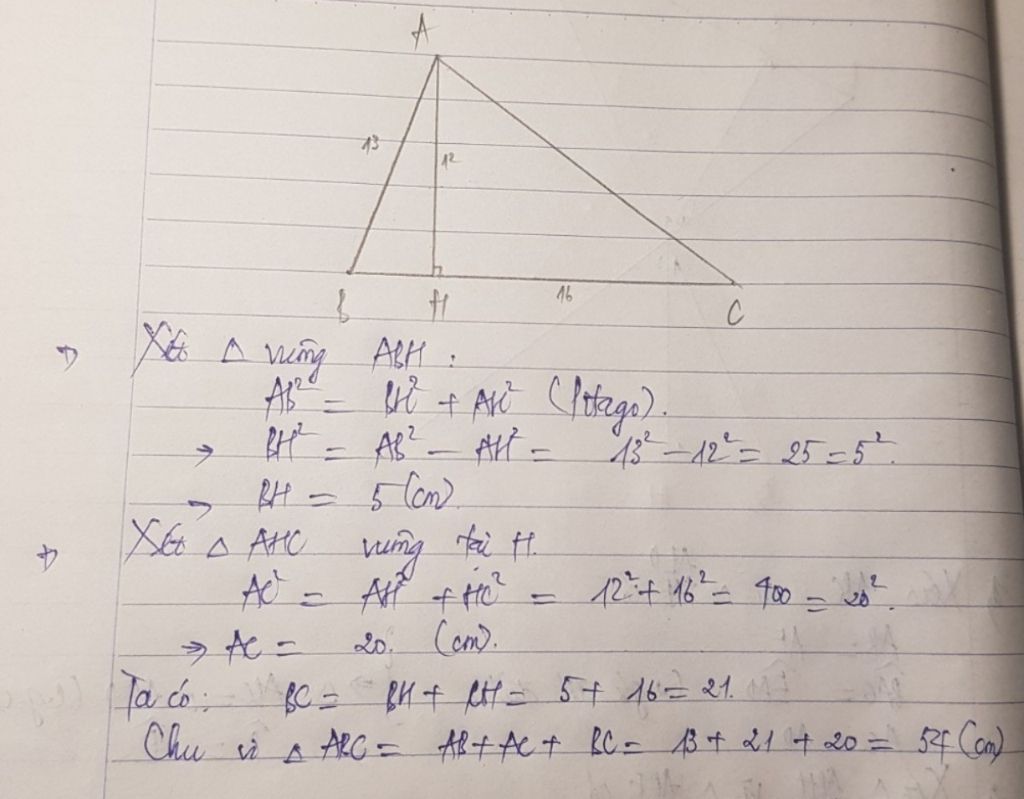 A
13
12
B H 16 C
Xét Δ vuông ABH :
AB² = BH² + AH² (Pitago).
→ BH² = AB² - AH² = 13² - 12² = 25 = 5².
→ BH = 5 (cm)
Xét Δ AHC vuông tại H.
AC² = AH² + HC² = 12² + 16² = 400 = 20².
→ AC = 20. (cm).
Ta có: BC = BH + CH = 5 + 16 = 21.
Chu vi Δ ABC = AB + AC + BC = 13 + 21 + 20 = 54 (cm)